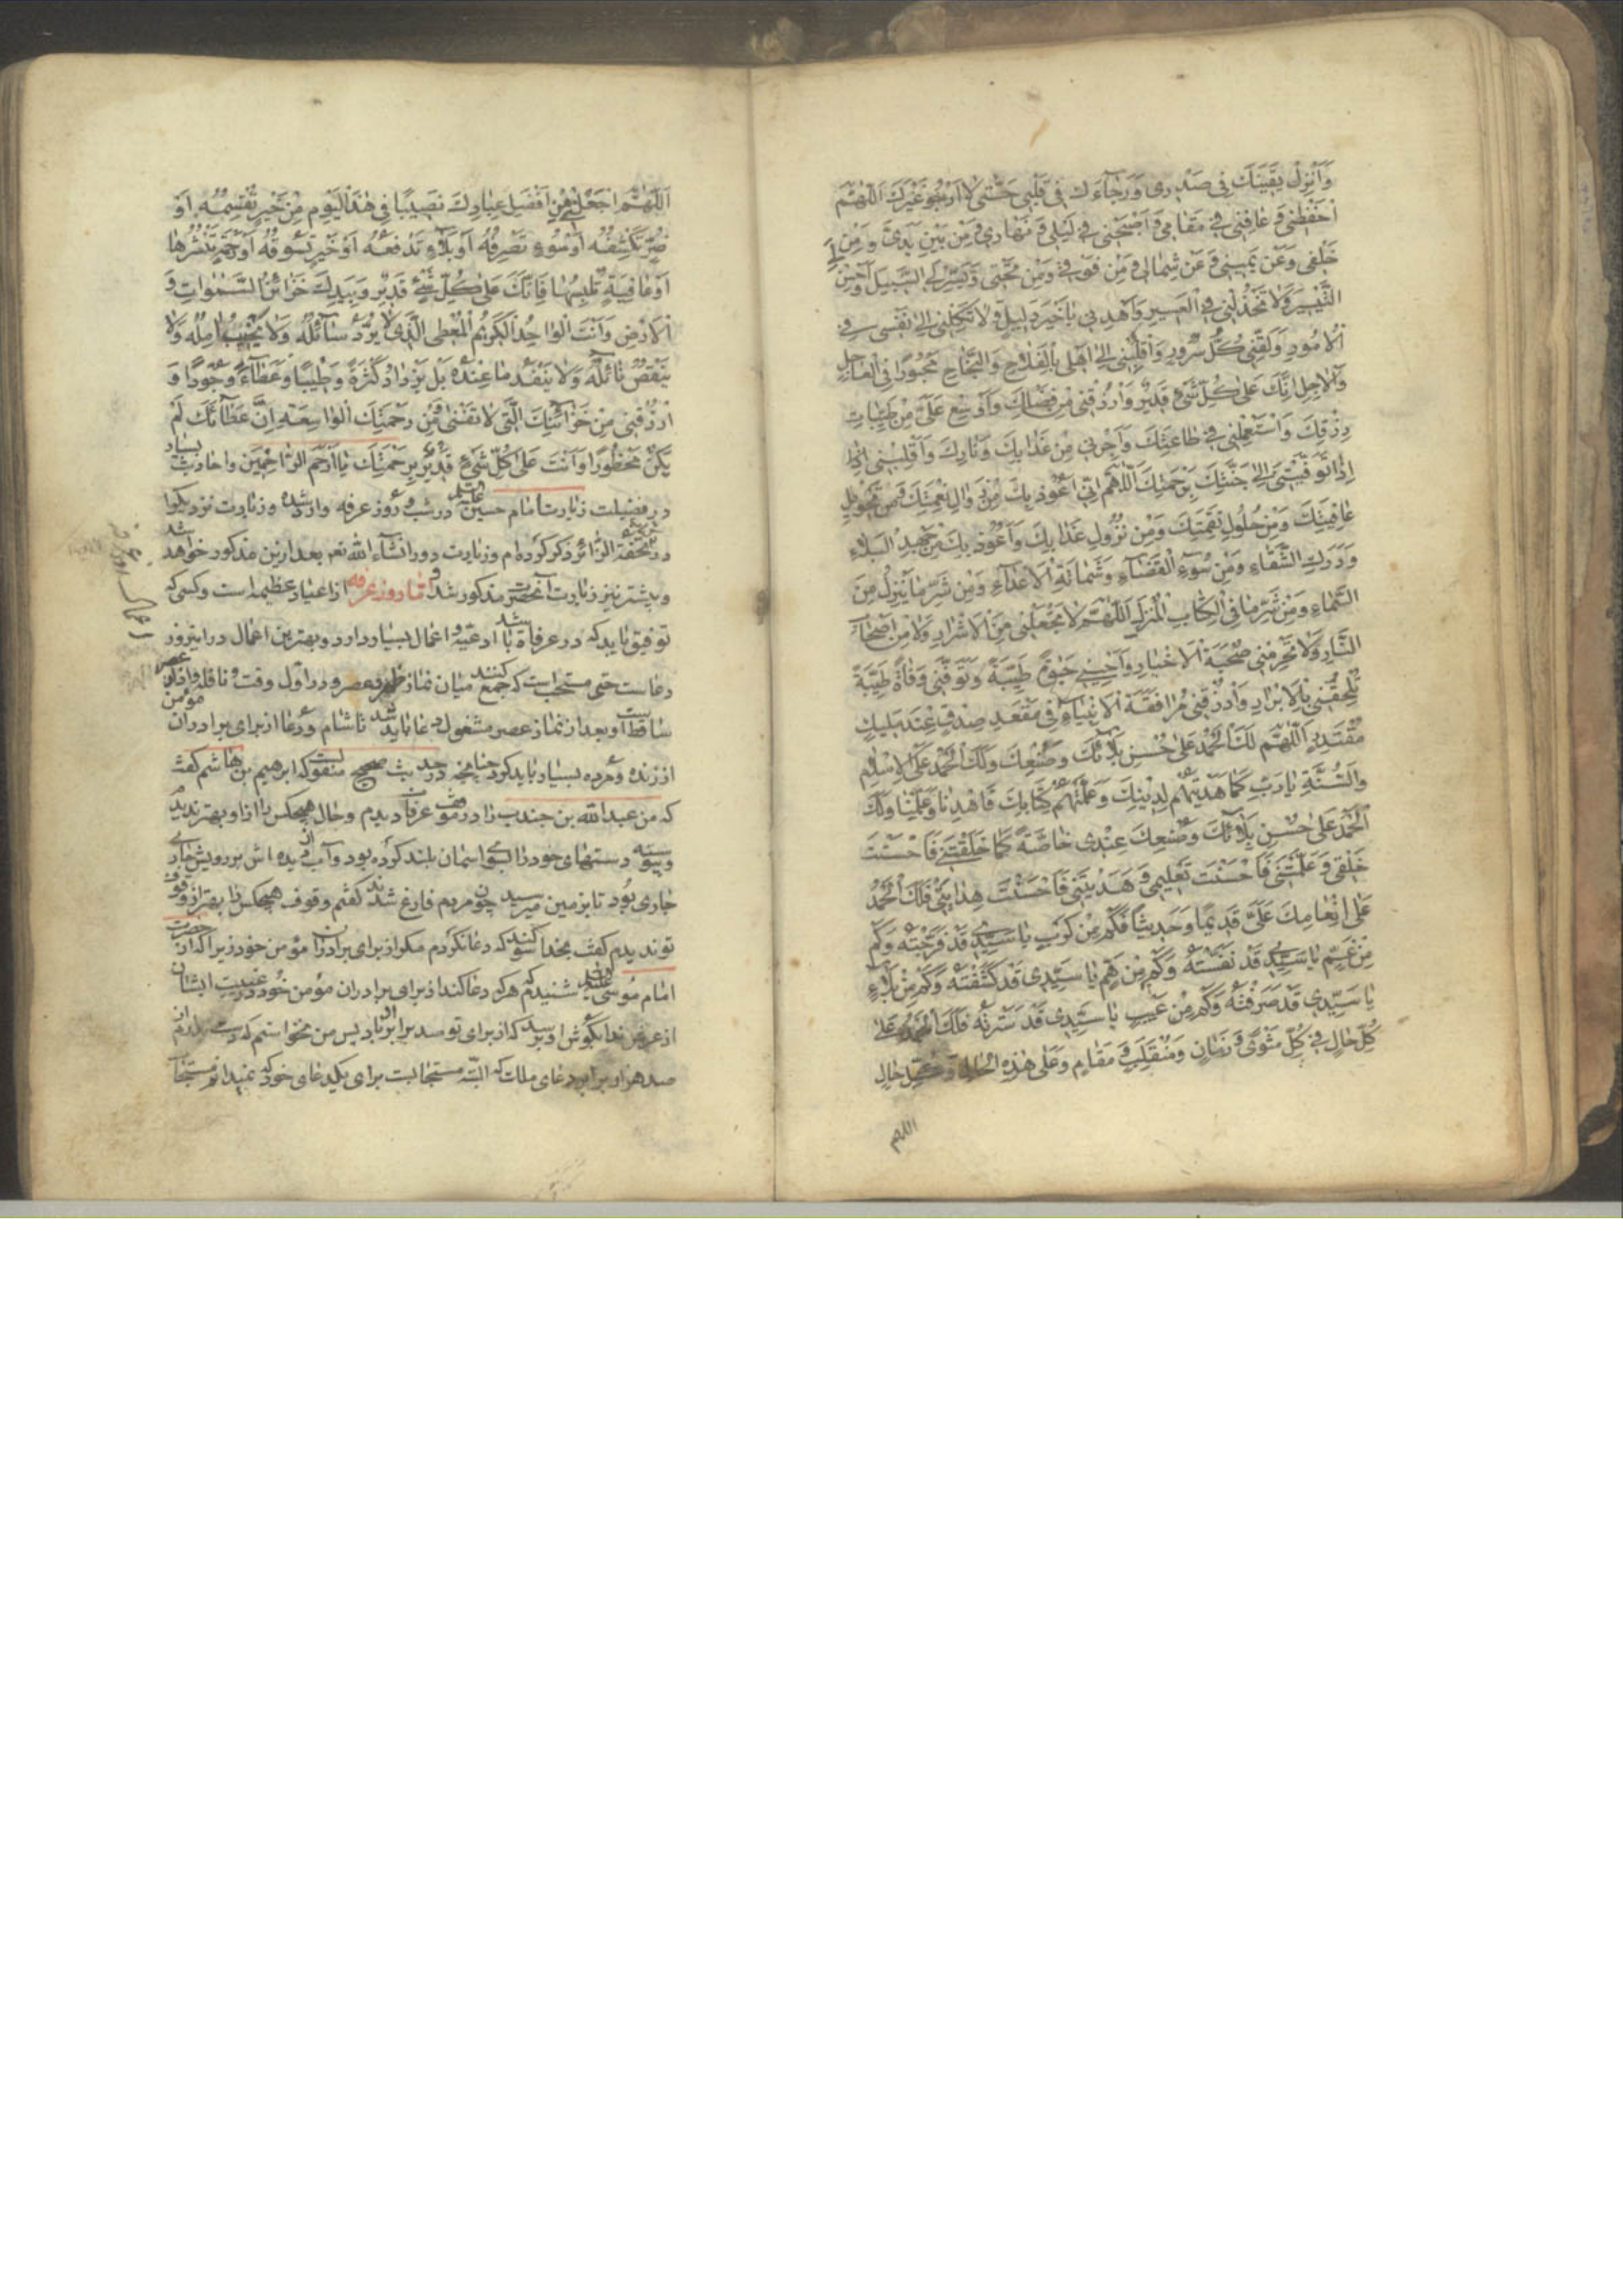 وَأَنْزِلْ يَقينَكَ فى صَدْرى وَرَجٰآءَكَ فى قَلْبى حَتّٰى لٰا اَرْجُوَ غَيْرَكَ اَللّٰهُمَّ
احْفَظْنى وَ عٰافِنى فى مَقٰامى وَ اَصْحِبْنى فى لَيْلى وَ نَهٰارى وَ مِنْ بَيْنِ يَدَىَّ وَ مِنْ
خَلْفى وَعَنْ يَمينى وَ عَنْ شِمٰالى وَ مِنْ فَوْقى وَمِنْ تَحْتى وَيَسِّرْ لِىَ السَّبيلَ
التَّيْسيرَ وَلٰا تَخْذُلْنى فى الْعَسيرِ وَاهْدِنى يٰا خَيْرَ دَليلٍ وَ لٰا تَكِلْنى اِلىٰ نَفْسى فى
الْاُمُورِ وَلَقِّنى كُلَّ سُرُورٍ وَاقْلِبْنى اِلىٰ اَهْلى بِالْفَلٰاحِ وَالنَّجٰاحِ مَحْبُورًا فِى الْعٰاجِلِ
وَالْاٰجِلِ اِنَّكَ عَلىٰ كُلِّ شَىْءٍ قَديرٌ وَارْزُقْنى مِنْ فَضْلِكَ وَاَوْسِعْ عَلَىَّ مِنْ طَيِّبٰاتِ
رِزْقِكَ وَاسْتَعْمِلْنى فى طٰاعَتِكَ وَاَجِرْنى مِنْ عَذٰابِكَ وَنٰارِكَ وَاقْلِبْنى
اِذٰا تَوَفَّيْتَنى اِلىٰ جَنَّتِكَ بِرَحْمَتِكَ اَللّٰهُمَّ اِنّى اَعُوذُ بِكَ مِنْ زَوٰالِ نِعْمَتِكَ وَ مِنْ تَحْويلِ
عٰافِيَتِكَ وَمِنْ حُلُولِ نِقْمَتِكَ وَمِنْ نُزُولِ عَذٰابِكَ وَاَعُوذُ بِكَ مِنْ جَهْدِ الْبَلٰاءِ
وَدَرَكِ الشَّقٰاءِ وَمِنْ سُوءِ الْقَضٰاءِ وَشَمٰاتَةِ الْاَعْدٰاءِ وَمِنْ شَرِّ مٰا يَنْزِلُ مِنَ
السَّمٰاءِ وَمِنْ شَرِّ مٰا فِى الْكِتٰابِ الْمُنْزَلِ اَللّٰهُمَّ لٰا تَجْعَلْنى مِنَ الْاَشْرٰارِ وَلٰا مِنْ اَصْحٰابِ
النّٰارِ وَلٰا تَحْرِمْنى صُحْبَةَ الْاَخْيٰارِ وَاَحْيِنى حَيٰوةً طَيِّبَةً وَتَوَفَّنى وَفٰاةً طَيِّبَةً
تُلْحِقُنى بِالْاَبْرٰارِ وَارْزُقْنى مُرٰافَقَةَ الْاَنْبِيٰاءِ فى مَقْعَدِ صِدْقٍ عِنْدَ مَليكٍ
مُقْتَدِرٍ اَللّٰهُمَّ لَكَ الْحَمْدُ عَلىٰ حُسْنِ بَلٰائِكَ وَصُنْعِكَ وَلَكَ الْحَمْدُ عَلَى الْاِسْلٰامِ
وَالسُّنَّةِ يٰارَبِّ كَمٰا هَدَيْتَهُمْ لِدينِكَ وَعَلَّمْتَهُمْ كِتٰابَكَ فَاهْدِنٰا وَعَلِّمْنٰا وَلَكَ
الْحَمْدُ عَلىٰ حُسْنِ بَلٰائِكَ وَصُنْعِكَ عِنْدى خٰاصَّةً كَمٰا خَلَقْتَنى فَاَحْسَنْتَ
خَلْقى وَعَلَّمْتَنى فَاَحْسَنْتَ تَعْليمى وَهَدَيْتَنى فَاَحْسَنْتَ هِدٰايَتى فَلَكَ الْحَمْدُ
عَلىٰ اِنْعٰامِكَ عَلَىَّ قَديمًا وَحَديثًا فَكَمْ مِنْ كَرْبٍ يٰا سَيِّدى قَدْ فَرَّجْتَهُ وَكَمْ
مِنْ غَمٍّ يٰا سَيِّدى قَدْ نَفَّسْتَهُ وَكَمْ مِنْ هَمٍّ يٰا سَيِّدى قَدْ كَشَفْتَهُ وَكَمْ مِنْ بَلٰاءٍ
يٰا سَيِّدى قَدْ صَرَفْتَهُ وَكَمْ مِنْ عَيْبٍ يٰا سَيِّدى قَدْ سَتَرْتَهُ فَلَكَ الْحَمْدُ عَلىٰ
كُلِّ حٰالٍ فى كُلِّ مَثْوًى وَ زَمٰانٍ وَمُنْقَلَبٍ وَ مَقٰامٍ وَعَلىٰ هٰذِهِ الْحٰالِ وَكُلِّ حٰالٍ
اللهم
اَللّٰهُمَّ اجْعَلْنى مِنْ اَفْضَلِ عِبٰادِكَ نَصيبًا فى هٰذَا الْيَوْمِ مِنْ خَيْرٍ تَقْسِمُهُ اَوْ
ضُرٍّ تَكْشِفُهُ اَوْ سُوءٍ تَصْرِفُهُ اَوْ بَلٰاءٍ تَدْفَعُهُ اَوْ خَيْرٍ تَسُوقُهُ اَوْ رَحْمَةٍ تَنْشُرُهٰا
اَوْ عٰافِيَةٍ تُلْبِسُهٰا فَاِنَّكَ عَلىٰ كُلِّ شَىْءٍ قَديرٌ وَبِيَدِكَ خَزٰائِنُ السَّمٰوٰاتِ وَ
الْاَرْضِ وَاَنْتَ الْوٰاحِدُ الْكَريمُ الْمُعْطِى الَّذى لٰا يُرَدُّ سٰائِلُهُ وَلٰا يُخَيَّبُ اٰمِلُهُ وَلٰا
يَنْقُصُ نٰائِلُهُ وَلٰا يَنْفَدُ مٰا عِنْدَهُ بَلْ يَزْدٰادُ كَثْرَةً وَطيبًا وَعَطٰاءً وَجُودًا وَ
ارْزُقْنى مِنْ خَزٰائِنِكَ الَّتى لٰا تَفْنىٰ وَمِنْ رَحْمَتِكَ الْوٰاسِعَةِ اِنَّ عَطٰائَكَ لَمْ
يَكُنْ مَحْظُورًا وَاَنْتَ عَلىٰ كُلِّ شَىْءٍ قَديرٌ بِرَحْمَتِكَ يٰا اَرْحَمَ الرّٰاحِمينَ واحاديث بسيار
در فضيلت زيارت امام حسين عليه السلام در شب و روز عرفه وارد شده و زيارت نزديك را
در تحفة الزائر ذكر كرده‌ام و زيارت دور انشاء الله تعم بعد ازين مذكور خواهد شد
و پيشتر نيز زيارت آنحضرت مذكور شد و اما روز عرفه از اعياد عظيمه است و كسى كه
توفيق يابد كه در عرفات باشد ادعيه و اعمال بسيار دارد و بهترين اعمال در اين روز
دعاست حتى مستحب است كه جمع كنند ميان نماز ظهر و عصر در اول وقت و نافله و اذان عصر
ساقط است و بعد از نماز عصر مشغول دعا بايد شد تا شام و دعا از براى برادران مؤمن
از زنده و مرده بسيار بايد كرد چنانچه در حديث صحيح منقولست كه ابرهيم بن هاشم گفت
كه من عبد الله بن جندب را در موقف عرفات ديدم و حال هيچكس را از او بهتر نديدم
و پيوسته دستهاى خود را بسوى اسمان بلند كرده بود و آب از ديده اش بر رويش جارى
جارى بود تا بزمين ميرسيد چون مردم فارغ شدند گفتم وقوف هيچكس را بهتر از وقوف
تو نديدم گفت بخدا سوگند كه دعا نكردم مگر از براى برادران مؤمن خود زيرا كه از حضرت
امام موسى عليه السلام شنيدم كه هر كه دعا كند از براى برادران مؤمن خود در غيبت ايشان
از عرش ندا بگوش او برسد كه از براى تو صد هزار برابر باد پس من نخواستم كه دست بردارم از
صد هزار برابر دعاى ملك كه البته مستجابست براى يك دعاى خود كه نميدانم مستجاب
اعمال روز عرفه